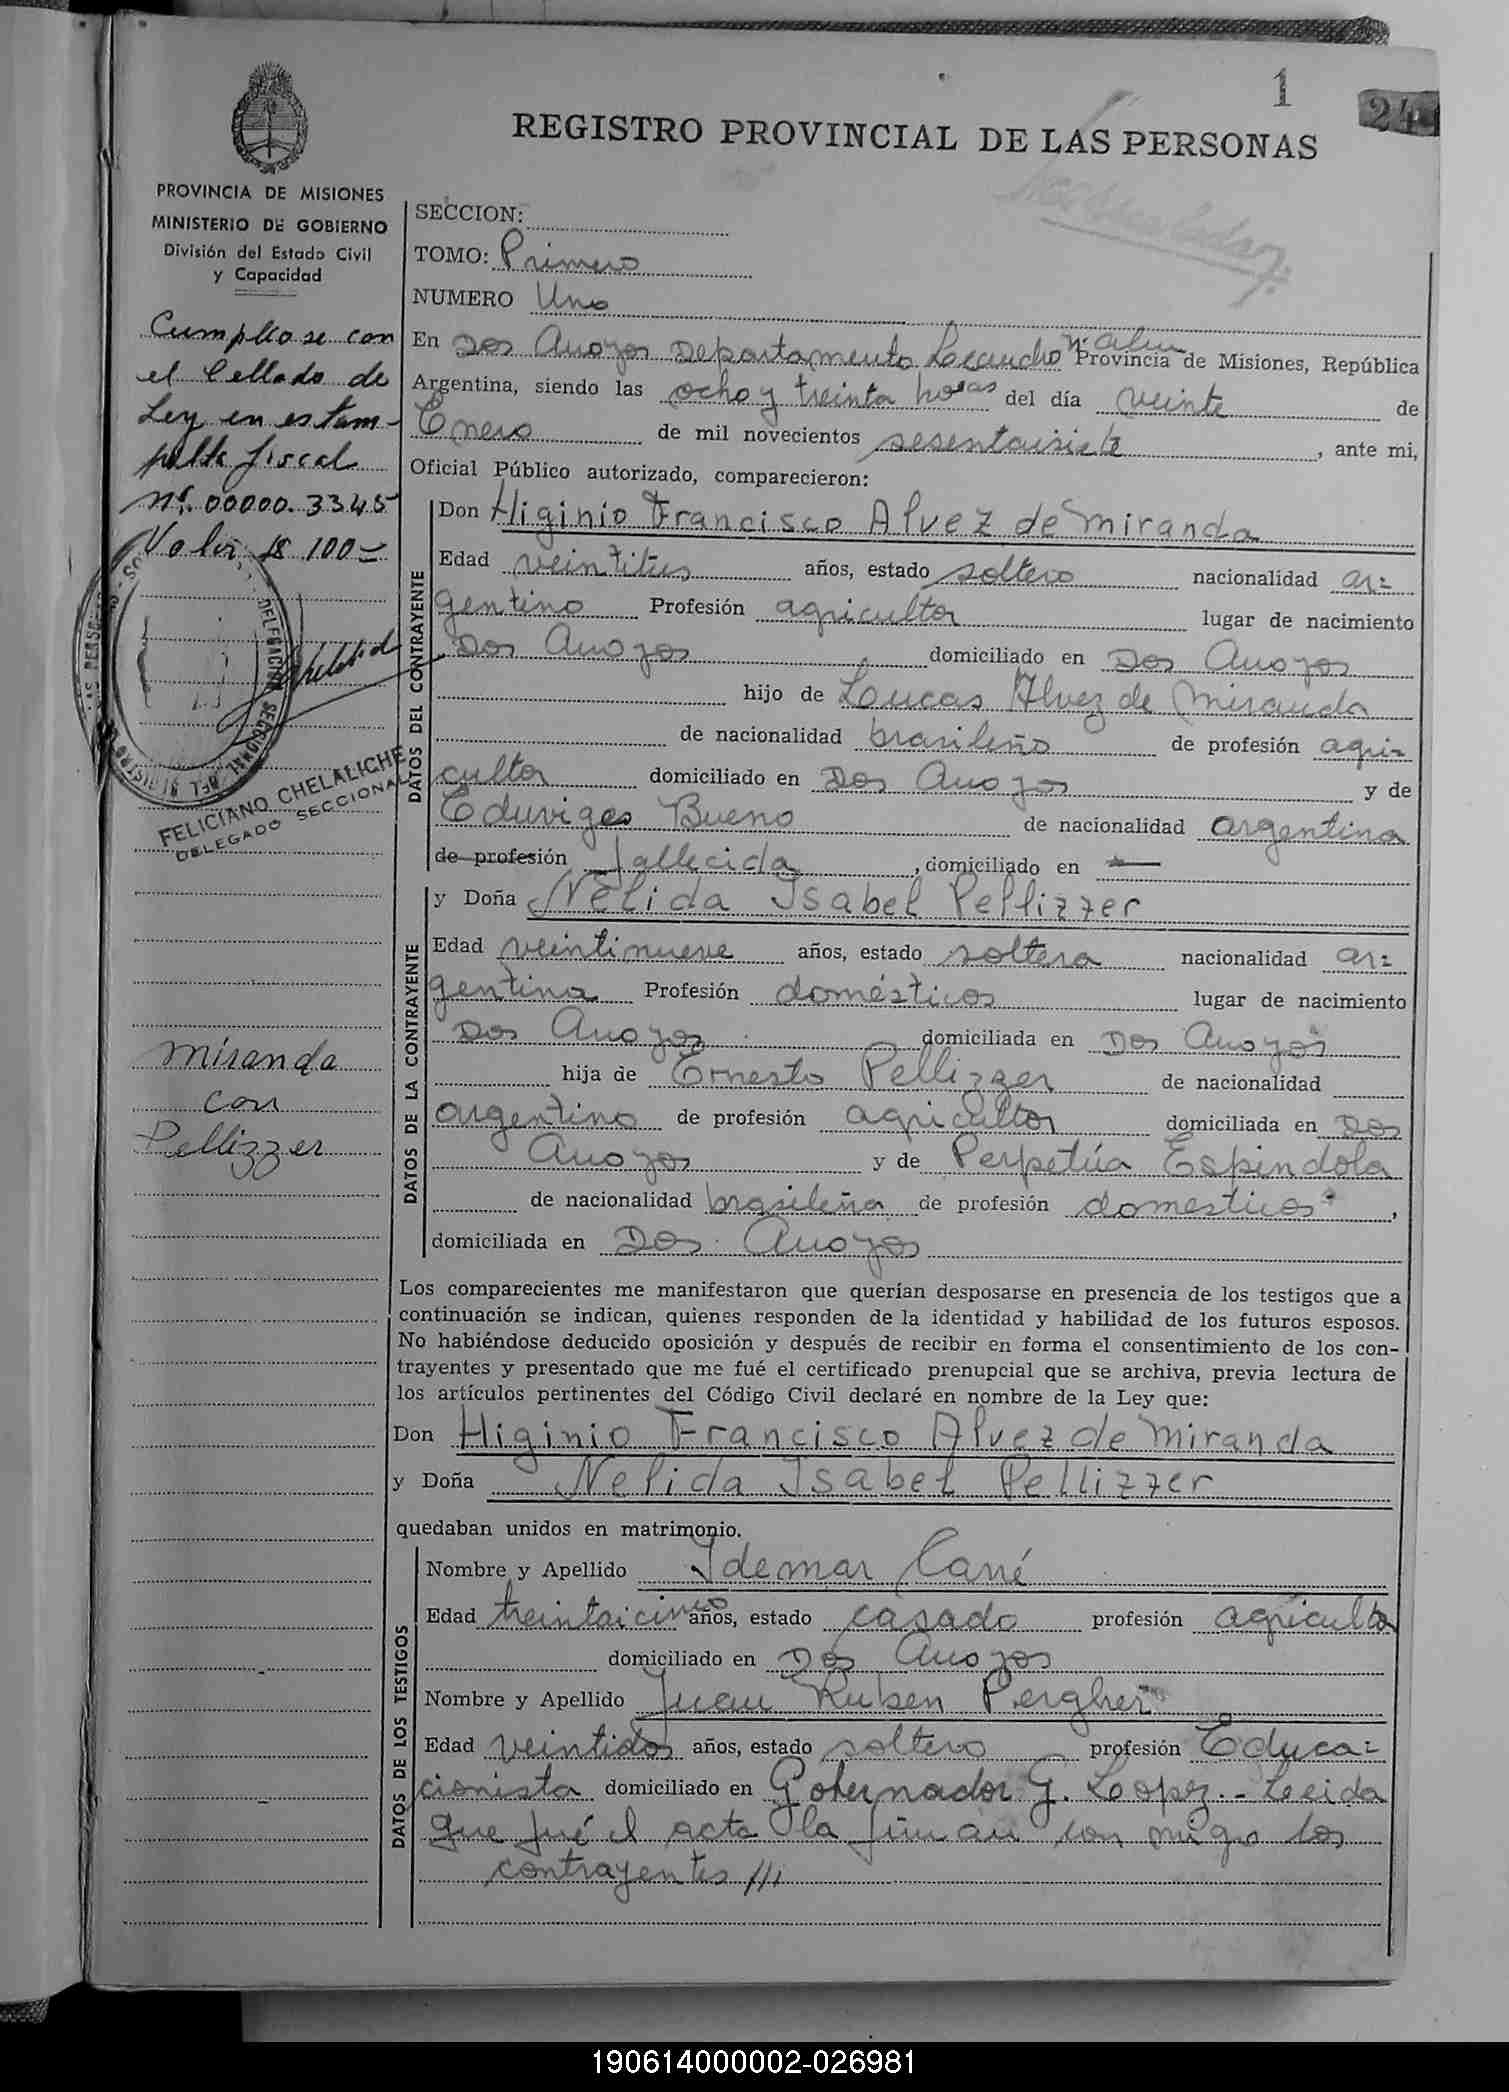 1
24
REGISTRO PROVINCIAL DE LAS PERSONAS
PROVINCIA DE MISIONES
MINISTERIO DE GOBIERNO
División del Estado Civil
y Capacidad
Cumplio se con
el Sellado de
Ley en estam-
pilla fiscal
Nº. 00000. 3345
Valor $ 100=
FELICIANO CHELALICHE
DELEGADO SECCIONAL
Miranda
con
Pellizzer
SECCION:
TOMO: Primero
NUMERO Uno
En Dos Arroyos Departamento Leandro N. Alem Provincia de Misiones, República
Argentina, siendo las ocho y treinta horas del día veinte de
Enero de mil novecientos sesentaisiete, ante mi,
Oficial Público autorizado, comparecieron:
DATOS DEL CONTRAYENTE
Don Higinio Francisco Alvez de Miranda
Edad veintitres años, estado soltero nacionalidad ar=
gentino Profesión agricultor lugar de nacimiento
Dos Arroyos domiciliado en Dos Arroyos
hijo de Lucas Alvez de Miranda
de nacionalidad brasileño de profesión agri=
cultor domiciliado en Dos Arroyos y de
Eduviges Bueno de nacionalidad argentina
de profesión fallecida, domiciliado en —
DATOS DE LA CONTRAYENTE
y Doña Nélida Isabel Pellizzer
Edad veintinueve años, estado soltera nacionalidad ar=
gentina Profesión domésticos lugar de nacimiento
Dos Arroyos domiciliada en Dos Arroyos
hija de Ernesto Pellizzer de nacionalidad
argentino de profesión agricultor domiciliada en Dos
Arroyos y de Perpetúa Espindola
de nacionalidad brasileña de profesión domesticos,
domiciliada en Dos Arroyos
Los comparecientes me manifestaron que querían desposarse en presencia de los testigos que a
continuación se indican, quienes responden de la identidad y habilidad de los futuros esposos.
No habiéndose deducido oposición y después de recibir en forma el consentimiento de los con-
trayentes y presentado que me fué el certificado prenupcial que se archiva, previa lectura de
los artículos pertinentes del Código Civil declaré en nombre de la Ley que:
Don Higinio Francisco Alvez de Miranda
y Doña Nelida Isabel Pellizzer
quedaban unidos en matrimonio.
DATOS DE LOS TESTIGOS
Nombre y Apellido Idemar Carré
Edad treintaicinco años, estado casado profesión agricultor
domiciliado en Dos Arroyos
Nombre y Apellido Juan Ruben Pergher
Edad veintidos años, estado soltero profesión Educa=
cionista domiciliado en Gobernador G. Lopez.- Leida
que fué el acta la firman con migo los
contrayentes ///
190614000002-026981